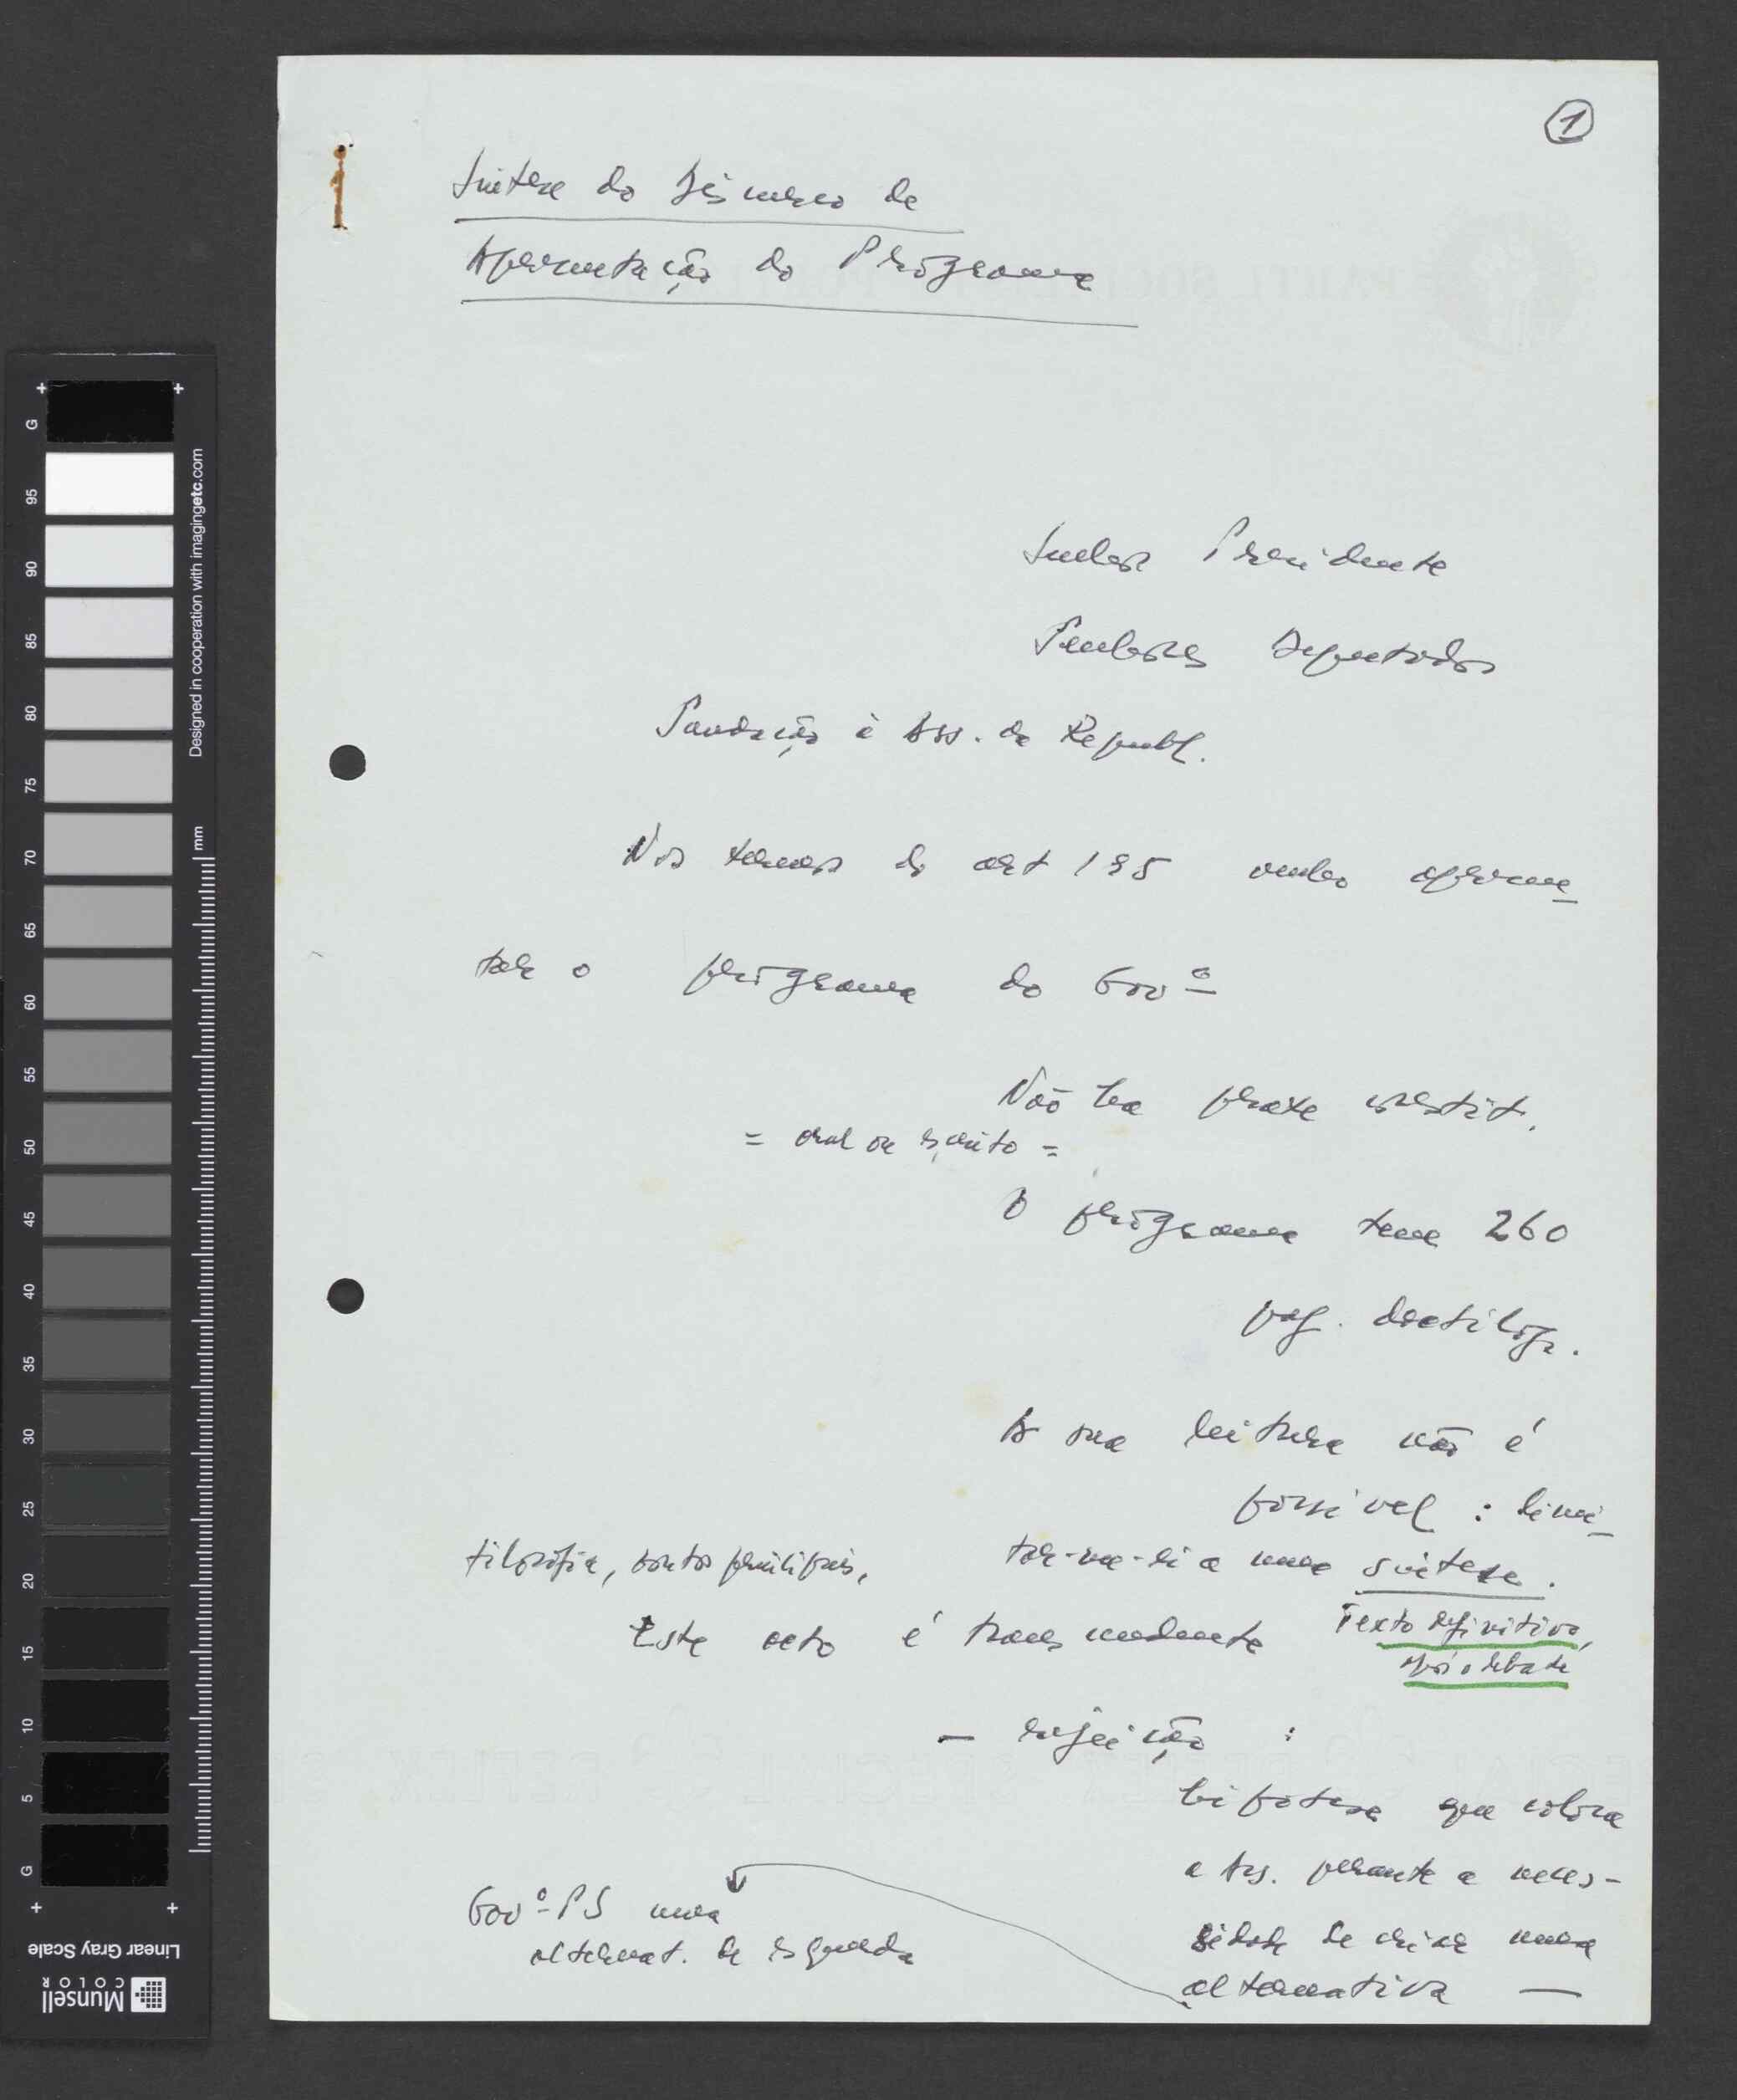 1
Síntese do Discurso de
Apresentação do Programa
Senhor Presidente
Senhores Deputados
Saudação à Ass. da Republ.
Nos termos do art 195 venho apresen
tar o programa do Govº
Não há praxe constit.
= oral ou escrito =
O programa tem 260
pag. dactilogr.
A sua leitura não é
possível : limi-
filosofia, pontos principais,
tar-me-ei a uma síntese.
Este acto é
Texto definitivo,
após o debate
— rejeição :
hipótese que coloca
a Ass. perante a neces-
sidade de criar uma
alternativa —
Govº PS uma
alternat. de esquerda
G
95
90
85
80
75
70
65
60
55
50
45
40
35
30
25
20
15
10
5
G
Designed in cooperation with imagingetc.com
mm
Linear Gray Scale
Munsell
COLOR